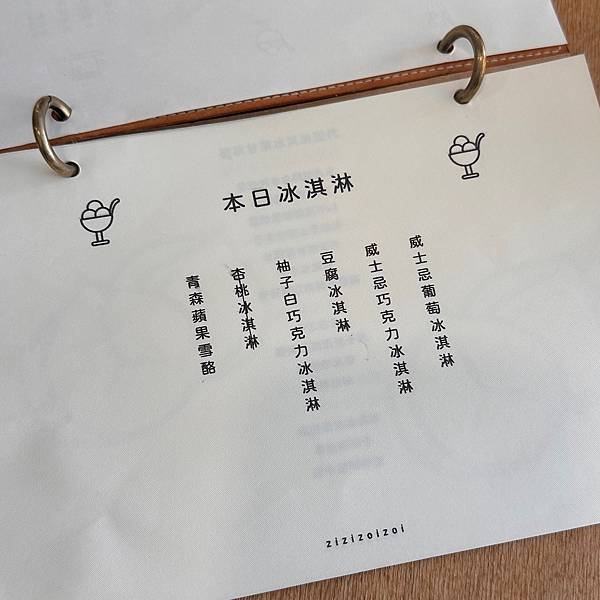 本日冰淇淋
威士忌葡萄冰淇淋
威士忌巧克力冰淇淋
豆腐冰淇淋
柚子白巧克力冰淇淋
杏桃冰淇淋
青森蘋果雪酪
zizizoizoi